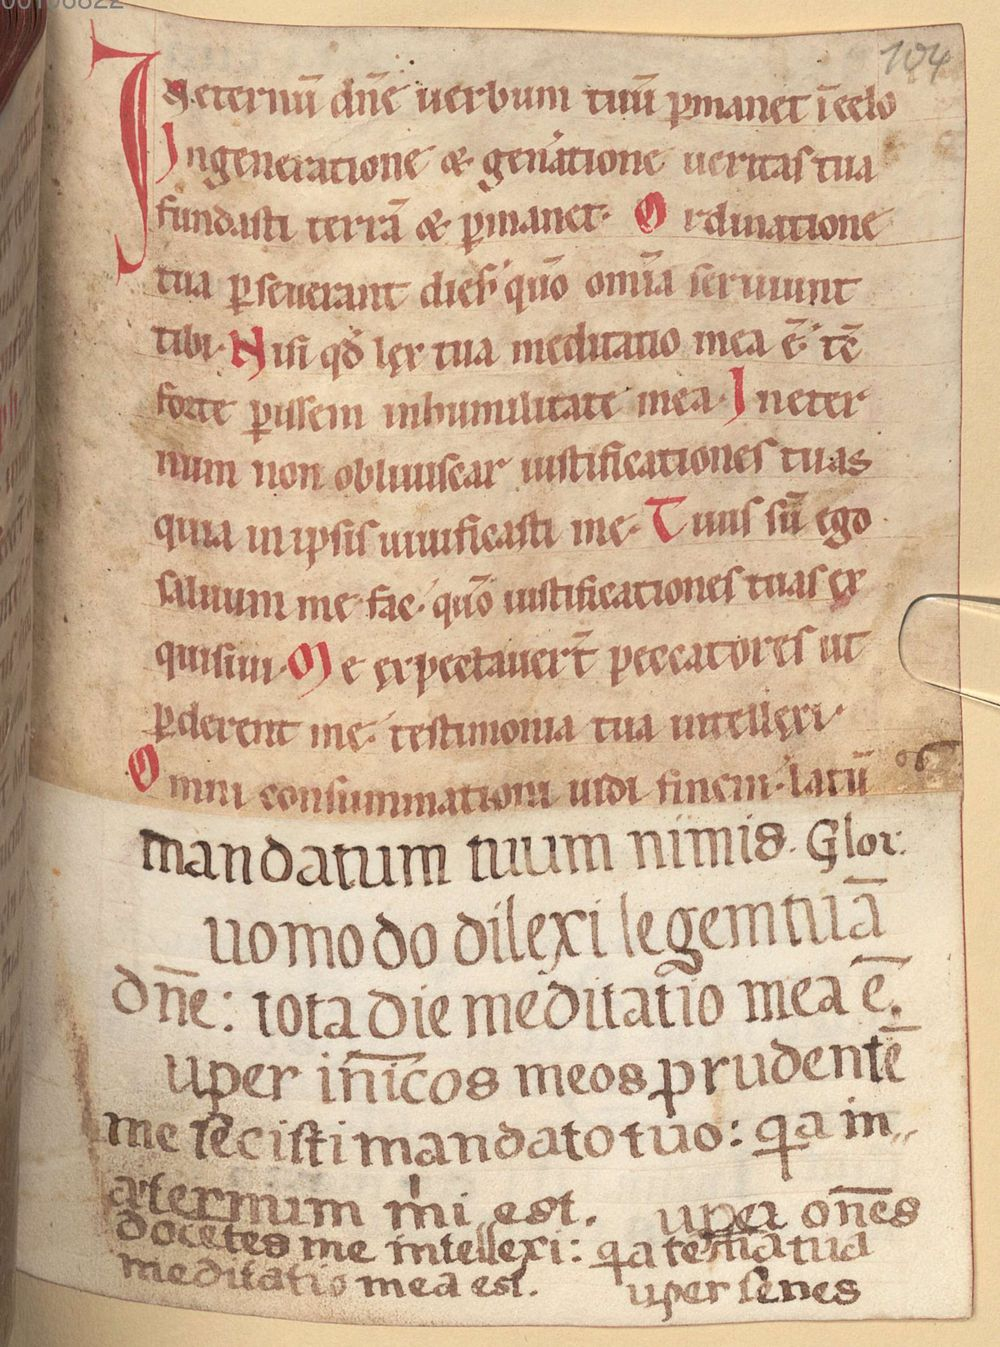 104
Ineternū dn̄e uerbum tuū ꝑmanet ī celo
Ingeneratione & gen̄atione ueritas tua
fundasti terrā & ꝑmanet. Ordinatione
tua ꝑseuerant dies. quō om̄ia seruiunt
tibi. Nisi qđ lex tua meditatio mea ē. tc̄
forte ꝑissem inhumilitate mea. Ineter
num non obliuiscar iustificationes tuas
quia in ipsis uiuificasti me. Tuus sū ego
saluum me fac. quō iustificationes tuas ex
quisiui. Me expectauerr̄t peccatores ut
ꝑderent me. testimonia tua intellexi.
Omni consummationi uidi finem. latū
mandatum tuum nimis. Glor.
uomodo dilexi legem tuā
dn̄e: tota die meditatio mea ē.
uper inīcos meos prudentē
me fecisti mandato tuo: qa in
æternum mi est. uper on̄es
docetes me intellexi: qa testīa tua
meditatio mea est. uper senes